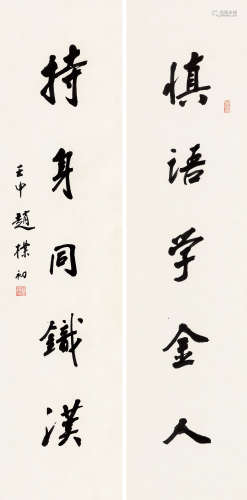 慎語学金人
持身同鐵漢
壬申 趙樸初